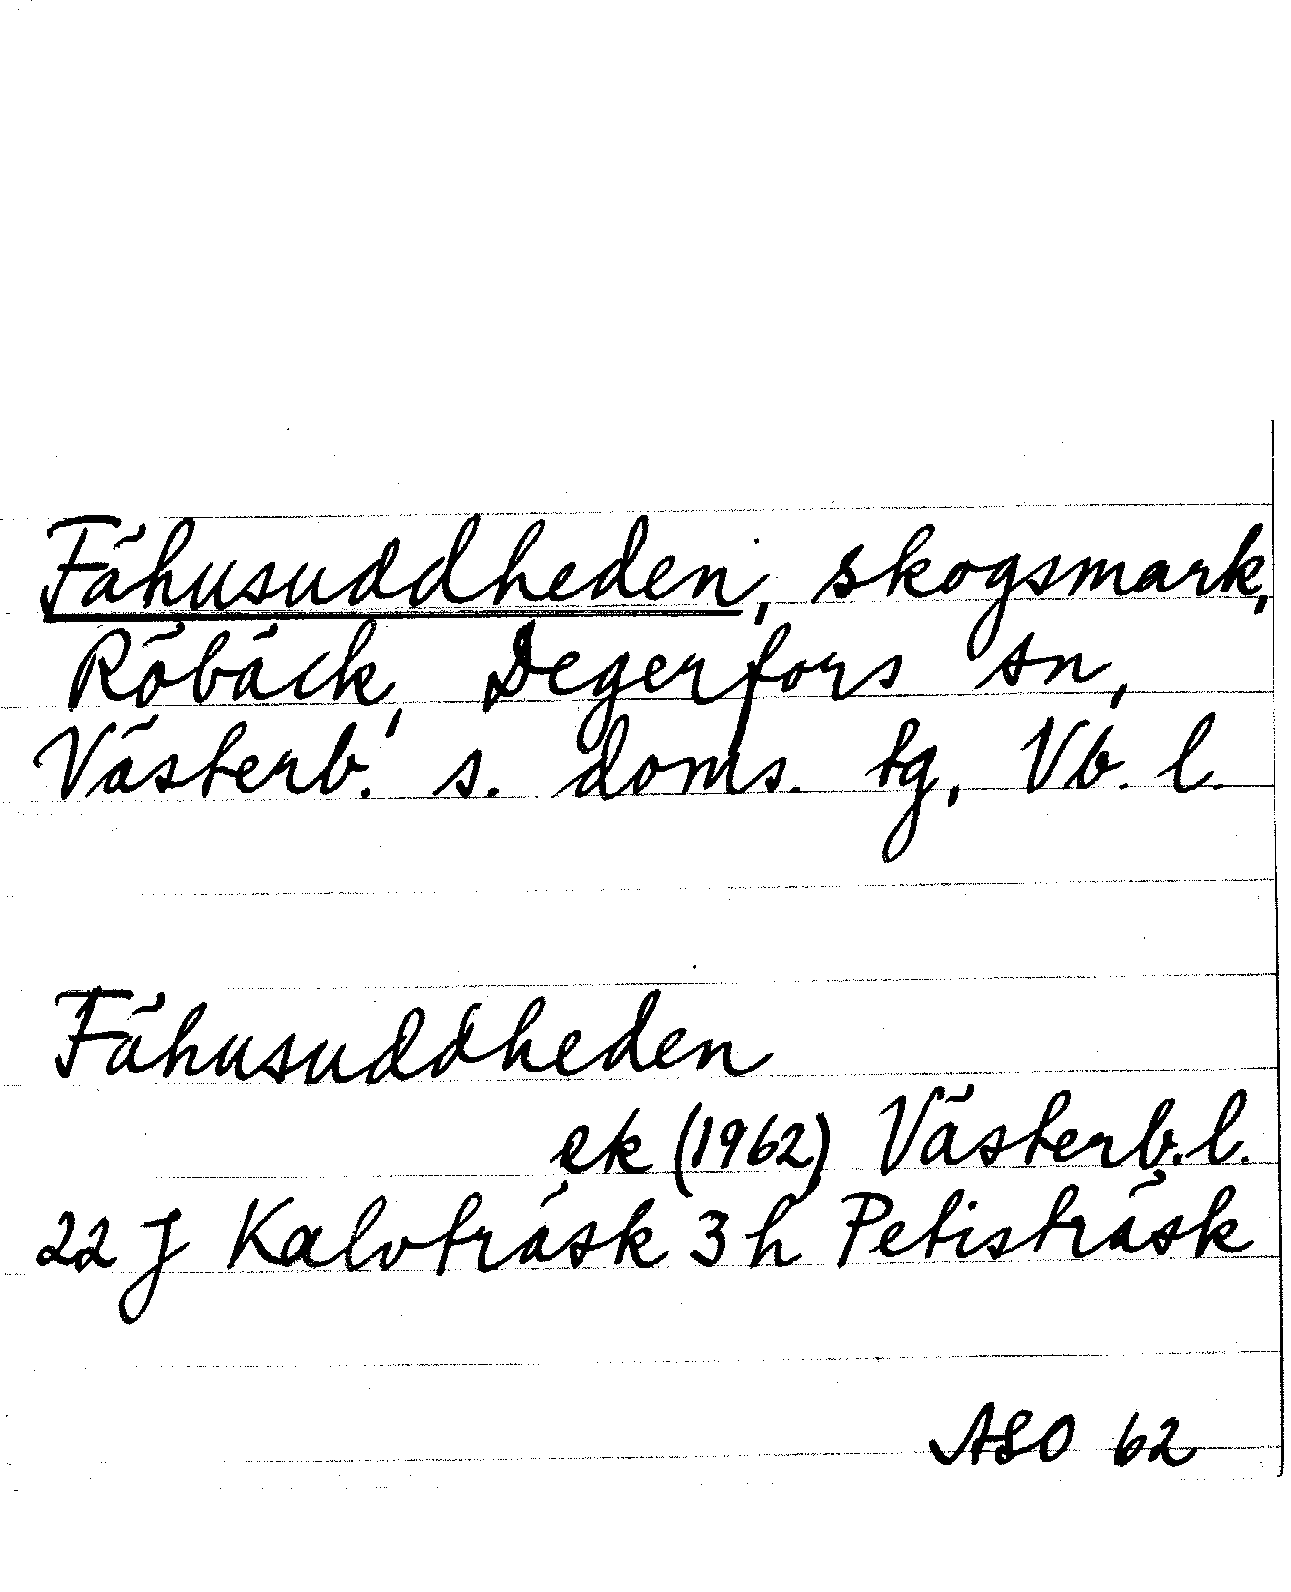 Fähusuddheden, skogsmark,
Röbäck, Degerfors sn,
Västerb. s. doms. tg, Vb. l.
Fähusuddheden
ek (1962) Västerb. l.
22 J Kalvträsk 3 h Petisträsk
ASO 62